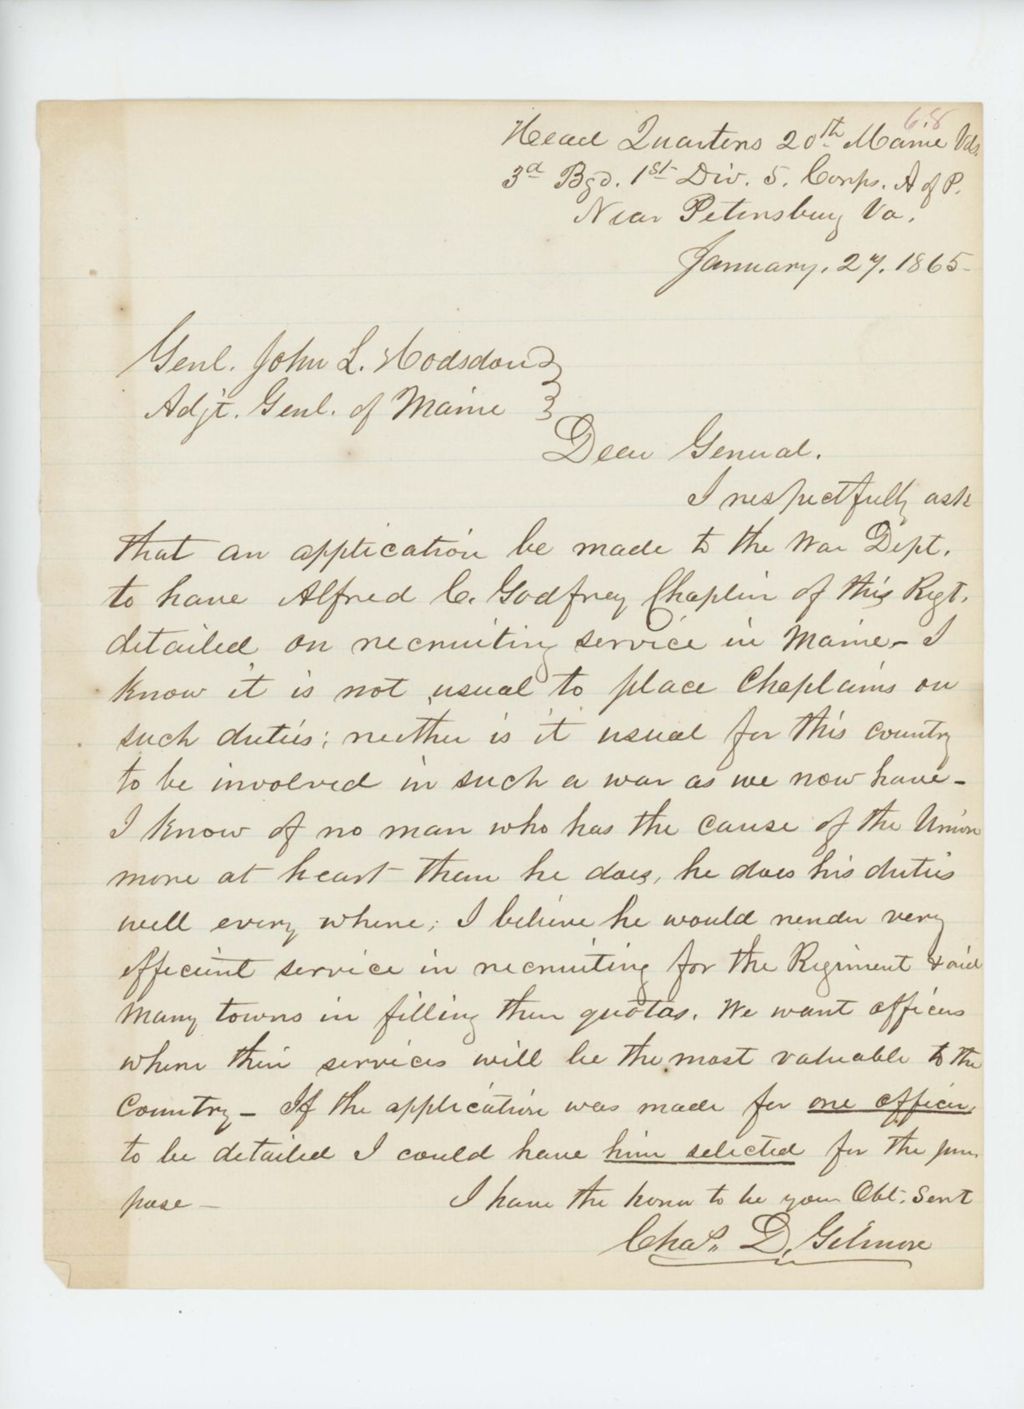 6.8
Head Quarters 20th Maine Vols.
3d Bgd. 1st Div. 5. Corps. A of P.
Near Petersburg Va.
January. 27. 1865-
Genl. John L. Hodsdon }
Adjt. Genl. of Maine }
Dear General.
I respectfully ask
that an application be made to the War Dept.
to have Alfred C. Godfrey Chaplin of this Regt.
detailed on recruiting service in Maine - I
know it is not usual to place Chaplains on
such duties; neither is it usual for this country
to be involved in such a war as we now have -
I know of no man who has the cause of the Union
more at heart than he does, he does his duties
well every where; I believe he would render very
efficient service in recruiting for the Regiment & aid
many towns in filling their quotas. We want officers
where their services will be the most valuable to the
Country - If the application was made for one officer,
to be detailed I could have him selected for the pur
pose - I have the honor to be your Obt. Servt
Chas. D. Gilmore